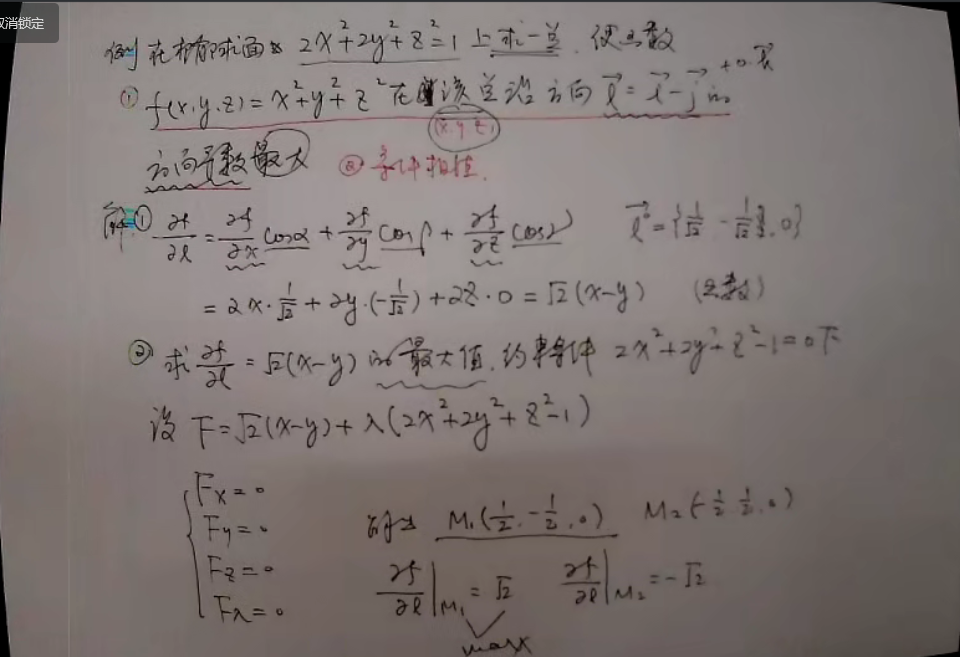 取消锁定
例 在椭球面 2x²+2y²+z²=1 上求一点, 使函数
① f(x,y,z)=x²+y²+z² 在该点沿方向 l⃗=i⃗-j⃗+0·k⃗ 的
(x,y,z)
方向导数最大 ② 条件极值.
解① ∂f/∂l = ∂f/∂x cosα + ∂f/∂y cosβ + ∂f/∂z cosγ l⃗°={1/√2, -1/√2, 0}
= 2x·1/√2 + 2y·(-1/√2) + 2z·0 = √2(x-y)
② 求 ∂f/∂l = √2(x-y) 的最大值, 约束条件 2x²+2y²+z²-1=0下
设 F=√2(x-y)+λ(2x²+2y²+z²-1)
Fx=0
Fy=0 M₁(1/2, -1/2, 0) M₂(-1/2, 1/2, 0)
Fz=0 ∂f/∂l|M₁ = √2 ∂f/∂l|M₂ = -√2
Fλ=0
max